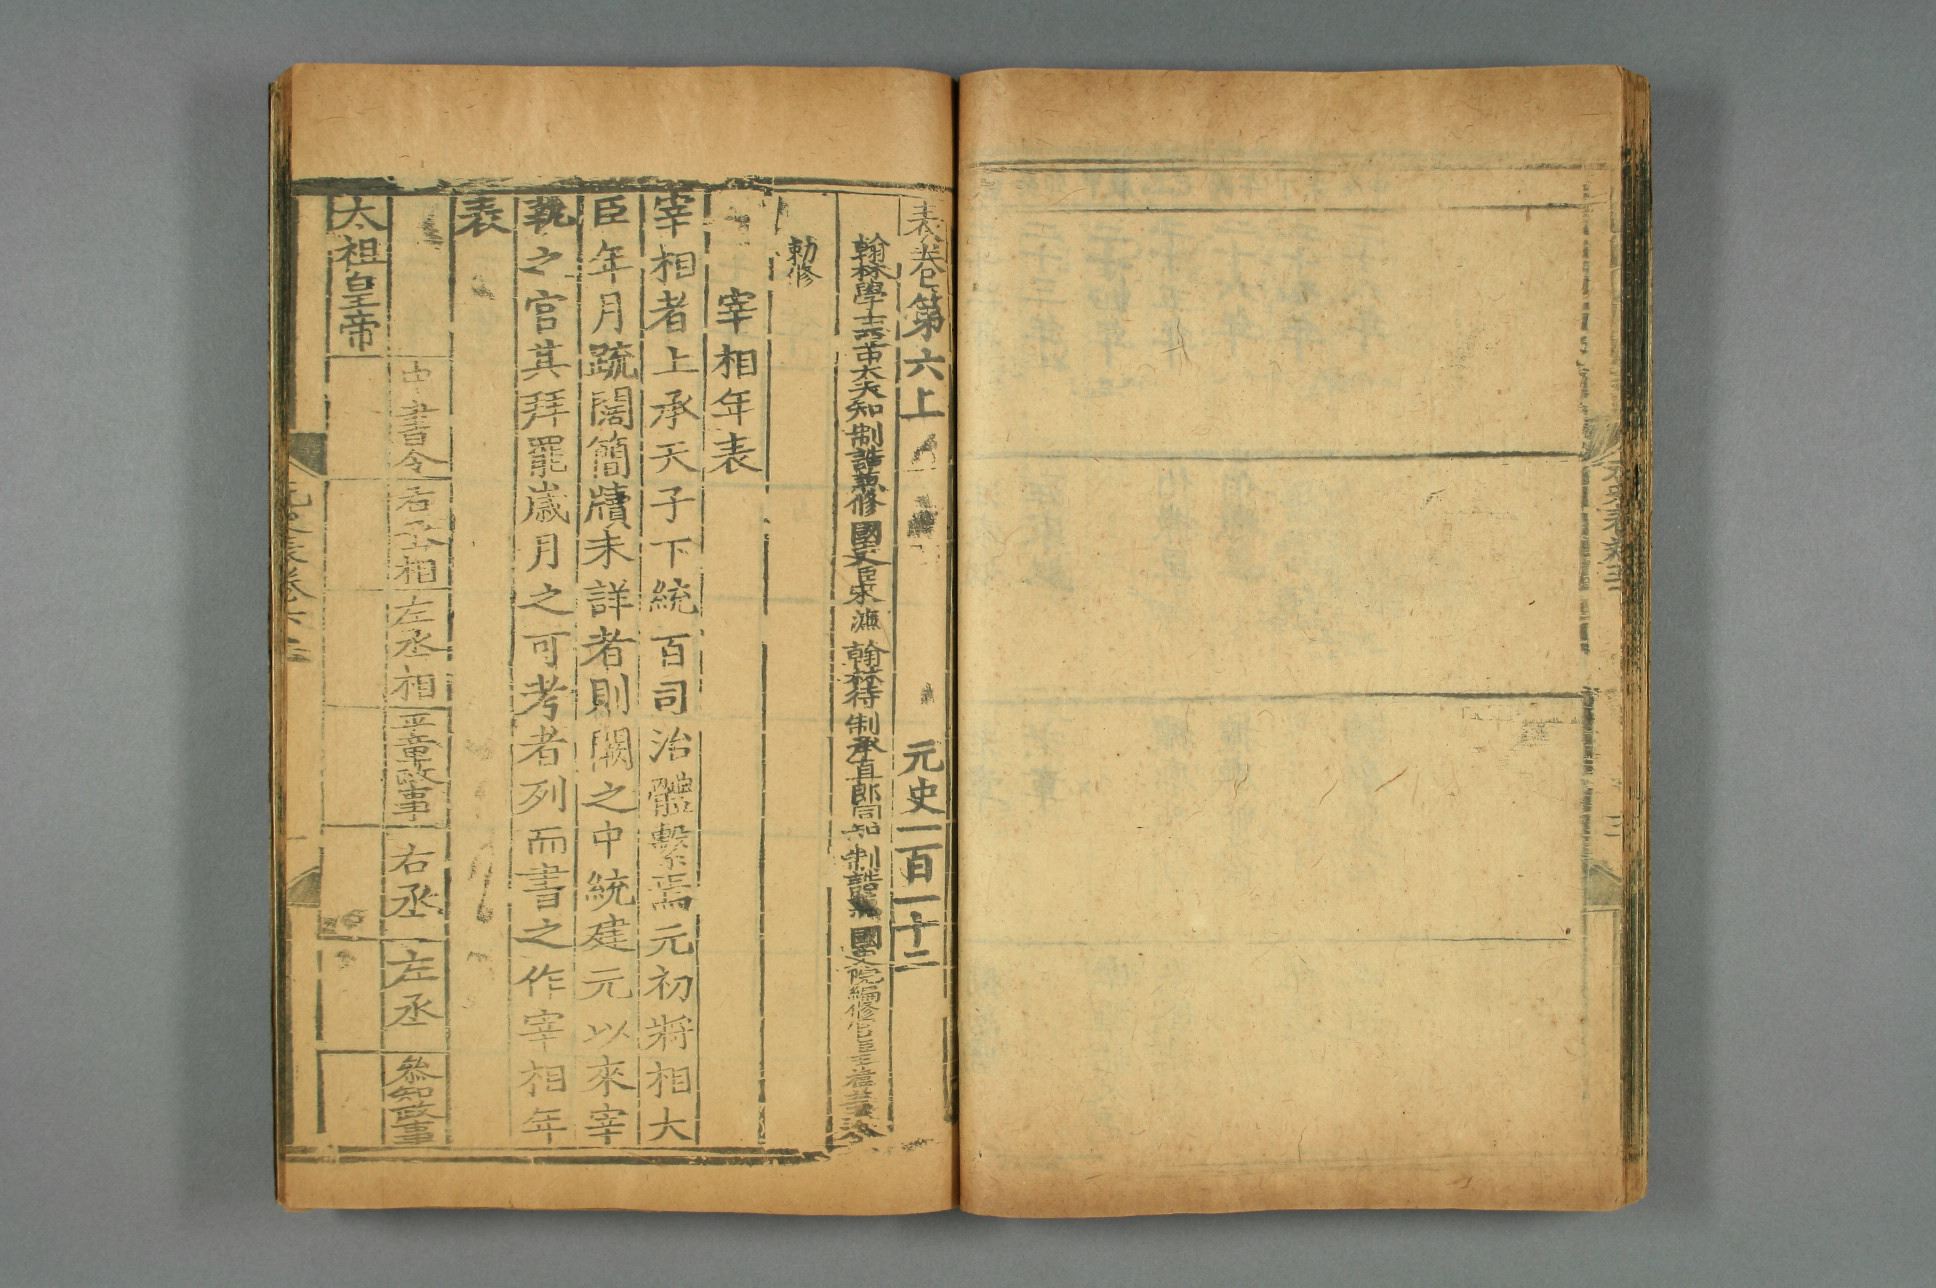 表卷第六上　元史一百一十二
翰林學士亞中大夫知制誥兼修國史臣宋濂 翰林待制承直郎同知制誥兼國史院編修官臣王禕等奉
勅修
宰相年表
宰相者上承天子下統百司治體繫焉元初將相大
臣年月疏闊簡牘未詳者則闕之中統建元以來宰
執之官其拜罷歲月之可考者列而書之作宰相年
表
中書令
右丞相
左丞相
平章政事
右丞
左丞
參知政事
太祖皇帝
元史表卷六上